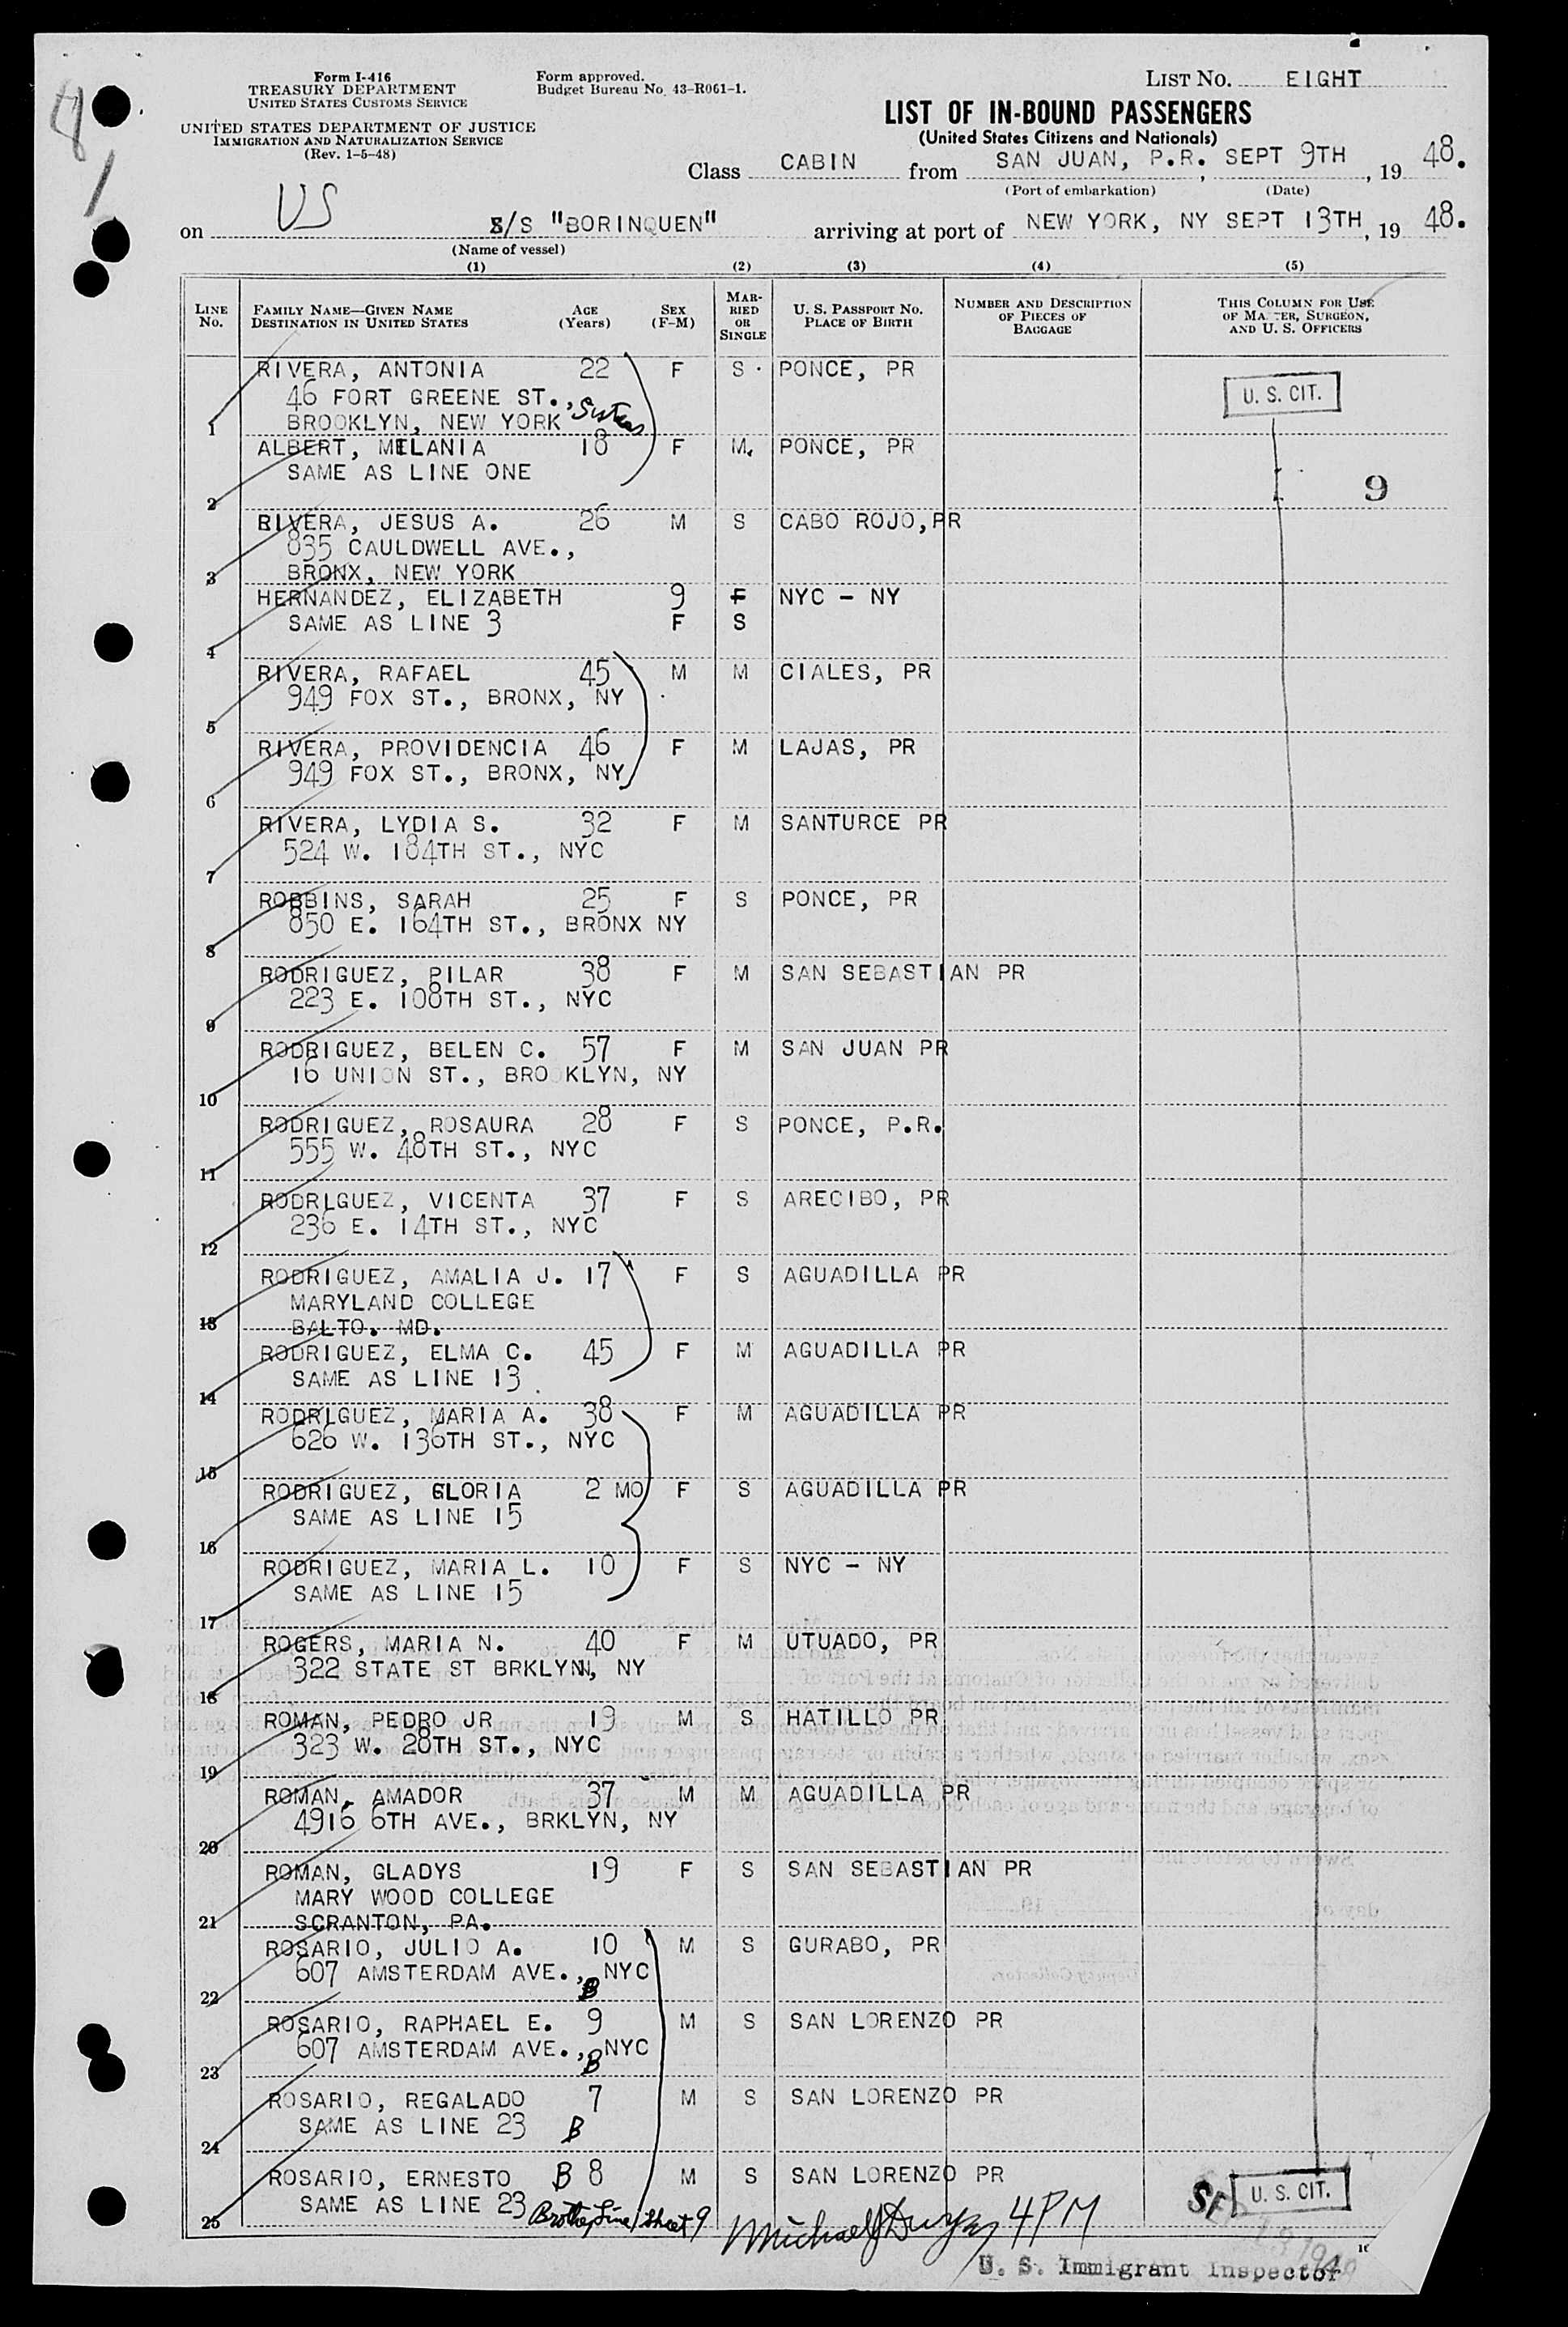 8
1
Form I-416
TREASURY DEPARTMENT
UNITED STATES CUSTOMS SERVICE
UNITED STATES DEPARTMENT OF JUSTICE
IMMIGRATION AND NATURALIZATION SERVICE
(Rev. 1-5-48)
Form approved.
Budget Bureau No. 43-R061-1.
LIST NO. EIGHT
LIST OF IN-BOUND PASSENGERS
(United States Citizens and Nationals)
Class CABIN from SAN JUAN, P.R. SEPT 9TH, 19 48.
(Port of embarkation) (Date)
US
on S/S "BORINQUEN" arriving at port of NEW YORK, NY SEPT 13TH, 19 48.
(Name of vessel)
(1) (2) (3) (4) (5)
LINE No. FAMILY NAME—GIVEN NAME DESTINATION IN UNITED STATES AGE (Years) SEX (F-M) MARRIED OR SINGLE U. S. PASSPORT NO. PLACE OF BIRTH NUMBER AND DESCRIPTION OF PIECES OF BAGGAGE THIS COLUMN FOR USE OF MASTER, SURGEON, AND U. S. OFFICERS
RIVERA, ANTONIA 22 F S PONCE, PR
46 FORT GREENE ST., Sisters U. S. CIT.
1 BROOKLYN, NEW YORK
ALBERT, MELANIA 18 F M. PONCE, PR
SAME AS LINE ONE
2 9
RIVERA, JESUS A. 26 M S CABO ROJO, PR
835 CAULDWELL AVE.,
3 BRONX, NEW YORK
HERNANDEZ, ELIZABETH 9 F NYC - NY
SAME AS LINE 3 F S
4
RIVERA, RAFAEL 45 M M CIALES, PR
949 FOX ST., BRONX, NY
5
RIVERA, PROVIDENCIA 46 F M LAJAS, PR
949 FOX ST., BRONX, NY
6
RIVERA, LYDIA S. 32 F M SANTURCE PR
524 W. 184TH ST., NYC
7
ROBBINS, SARAH 25 F S PONCE, PR
850 E. 164TH ST., BRONX NY
8
RODRIGUEZ, PILAR 38 F M SAN SEBASTIAN PR
223 E. 108TH ST., NYC
9
RODRIGUEZ, BELEN C. 57 F M SAN JUAN PR
16 UNION ST., BROOKLYN, NY
10
RODRIGUEZ, ROSAURA 28 F S PONCE, P.R.
555 W. 48TH ST., NYC
11
RODRIGUEZ, VICENTA 37 F S ARECIBO, PR
236 E. 14TH ST., NYC
12
RODRIGUEZ, AMALIA J. 17 F S AGUADILLA PR
MARYLAND COLLEGE
13 BALTO. MD.
RODRIGUEZ, ELMA C. 45 F M AGUADILLA PR
SAME AS LINE 13
14
RODRIGUEZ, MARIA A. 38 F M AGUADILLA PR
626 W. 136TH ST., NYC
15
RODRIGUEZ, GLORIA 2 MO F S AGUADILLA PR
SAME AS LINE 15
16
RODRIGUEZ, MARIA L. 10 F S NYC - NY
SAME AS LINE 15
17
ROGERS, MARIA N. 40 F M UTUADO, PR
322 STATE ST BRKLYN, NY
18
ROMAN, PEDRO JR 19 M S HATILLO PR
323 W. 28TH ST., NYC
19
ROMAN, AMADOR 37 M M AGUADILLA PR
4916 6TH AVE., BRKLYN, NY
20
ROMAN, GLADYS 19 F S SAN SEBASTIAN PR
MARY WOOD COLLEGE
21 SCRANTON, PA.
ROSARIO, JULIO A. 10 M S GURABO, PR
607 AMSTERDAM AVE., NYC
22 B
ROSARIO, RAPHAEL E. 9 M S SAN LORENZO PR
607 AMSTERDAM AVE., NYC
23 B
ROSARIO, REGALADO 7 M S SAN LORENZO PR
SAME AS LINE 23 B
24
ROSARIO, ERNESTO B 8 M S SAN LORENZO PR
25 SAME AS LINE 23 Brother Line 1 Sheet 9 U. S. CIT.
Michael J Dwyer 4PM
U. S. Immigrant Inspector